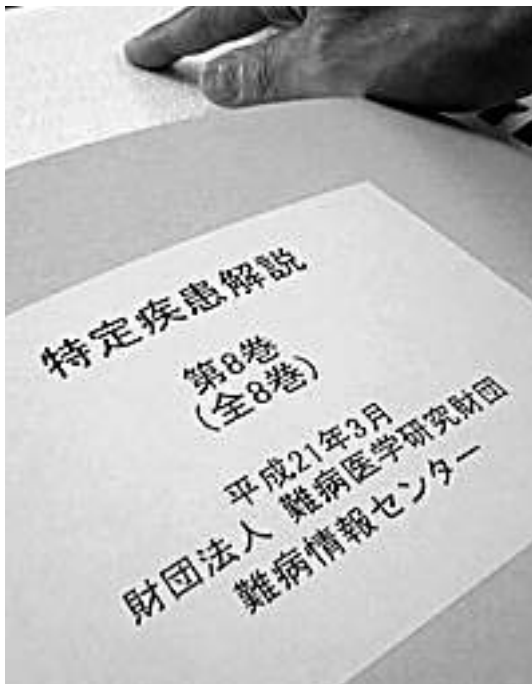 特定疾患解説
第8巻
(全8巻)
平成21年3月
財団法人 難病医学研究財団
難病情報センター